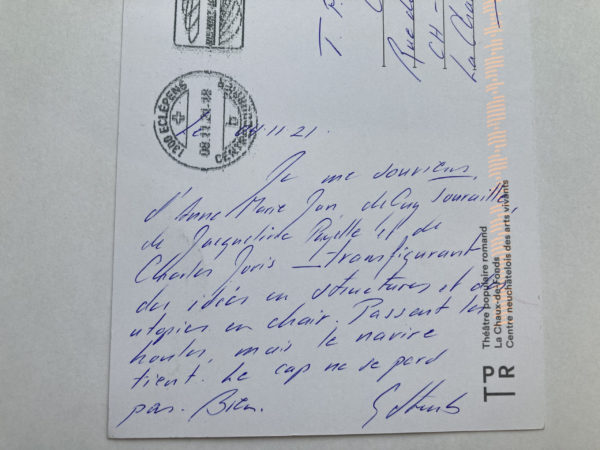 T. P.
Rue de
CH -
La Chau
1300 ECLÉPENS
08.11.21-18
CENTRE
11 21.
Je me souviens,
d'Anne Marie Jan de Guy
de Jacqueline et de
Charles Joris — transfigurant
des idées en structures et des
utopies en chair. Passent les
houles, mais le navire
tient. Le cap ne se perd
pas. Bien.
TPR
Théâtre populaire romand
La Chaux-de-Fonds
Centre neuchâtelois des arts vivants